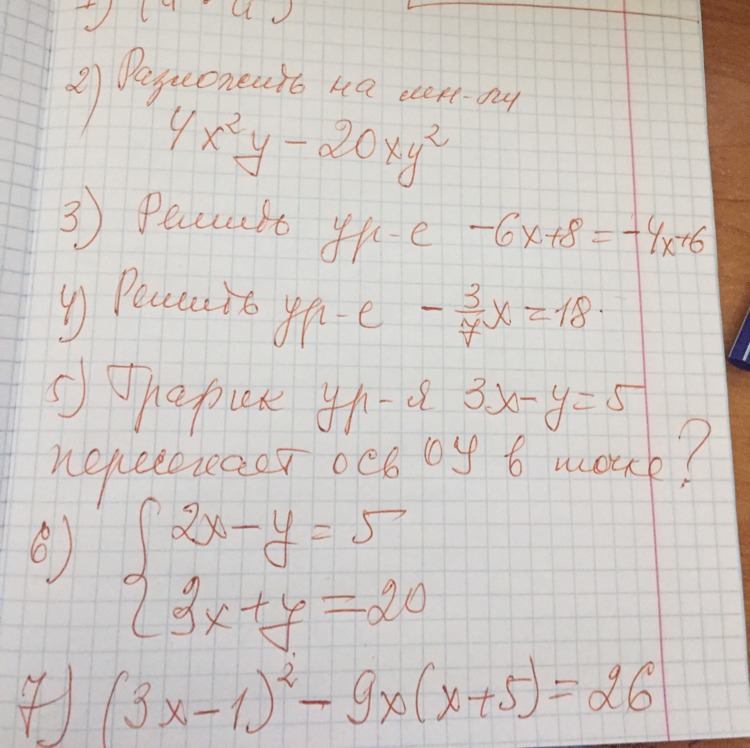 2) Разложить на мн-ли
4x²y - 20xy²
3) Решить ур-е -6x+8=-4x+6
4) Решить ур-е -3/7x=18.
5) График ур-я 3x-y=5
пересекает ось OY в точке?
6) { 2x-y=5
3x+y=20
7) (3x-1)² - 9x(x+5)=26